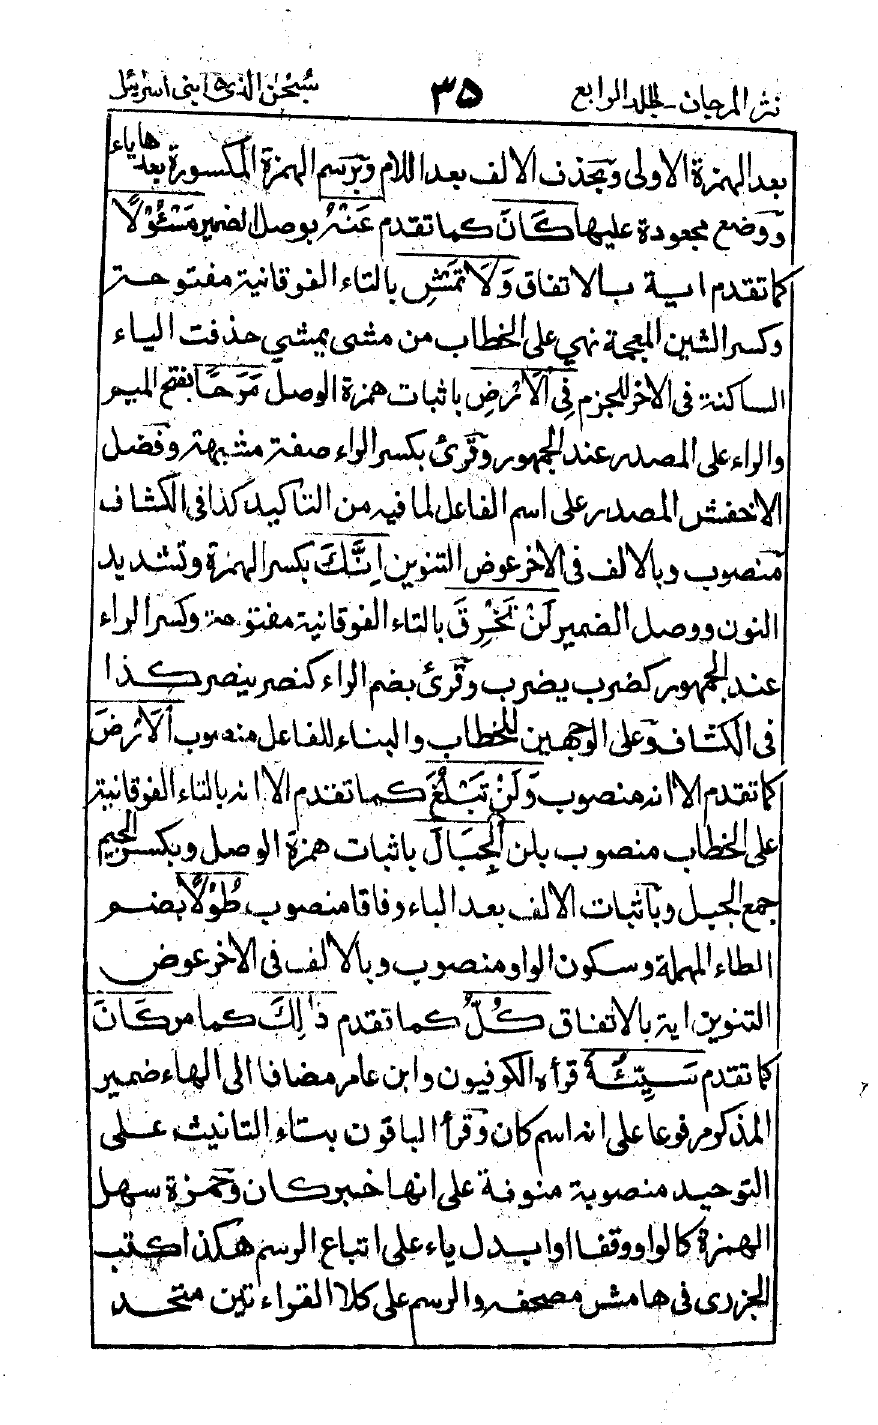 نثر المرجان - جلد الرابع ۳۵ سُبْحٰن الذی ۱۵ بنی اسرٓءیل
بعد الهمزة الاولى ويحذف الالف بعد اللام ويرسم الهمزة المكسورة بعدها ياء
ووضع مجعودة عليها كَانَ كما تقدم عَنْهُ بوصل الضمير مَسْئُوْلًا
كما تقدم اية بالاتفاق وَلَا تَمْشِ بالتاء الفوقانية مفتوحة
وكسر الشين المعجمة نهي على الخطاب من مشى يمشي حذفت الياء
الساكنة فى الاخر للجزم فِى الْاَرْضِ باثبات همزة الوصل مَرَحًا بفتح الميم
والراء على المصدر عند الجمهور وقرئ بكسر الراء صفة مشبهة وفضل
الاخفش المصدر على اسم الفاعل لما فيه من التاكيد كذا فى الكشاف
منصوب وبالالف فى الاخر عوض التنوين اِنَّكَ بكسر الهمزة وتشديد
النون ووصل الضمير لَنْ تَخْرِقَ بالتاء الفوقانية مفتوحة وكسر الراء
عند الجمهور كضرب يضرب وقرئ بضم الراء كنصر ينصر كذا
فى الكشاف وعلى الوجهين للخطاب والبناء للفاعل منصوب الْاَرْضَ
كما تقدم الا انه منصوب وَلَنْ تَبْلُغَ كما تقدم الا انه بالتاء الفوقانية
على الخطاب منصوب بلن الْجِبَالَ باثبات همزة الوصل وبكسر الجيم
جمع الجبل وباثبات الالف بعد الباء وفاقا منصوب طُوْلًا بضم
الطاء المهملة وسكون الواو منصوب وبالالف فى الاخر عوض
التنوين اية بالاتفاق كُلُّ كما تقدم ذٰلِكَ كما مر كَانَ
كما تقدم سَيِّئُهٗ قرأه الكوفيون وابن عامر مضافا الى الهاء ضمير
المذكور مرفوعا على انه اسم كان وقرأ الباقون بتاء التانيث على
التوحيد منصوبة منونة على انها خبر كان وحمزة سهل
الهمزة كالواو وقفا او ابدل ياء على اتباع الرسم هكذا كتب
الجزرى فى هامش مصحفه والرسم على كلا القراءتين متحد